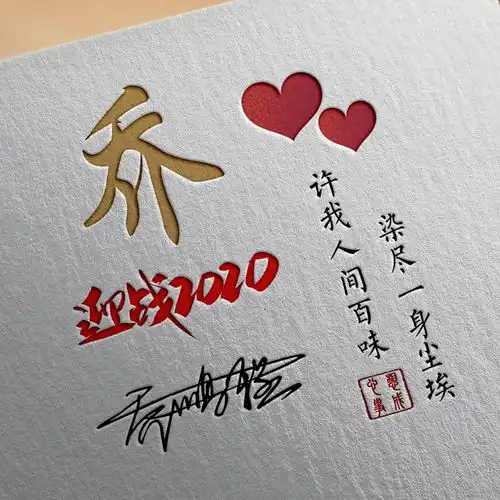 乔
迎战2020
染尽一身尘埃
许我人间百味
心想
事成